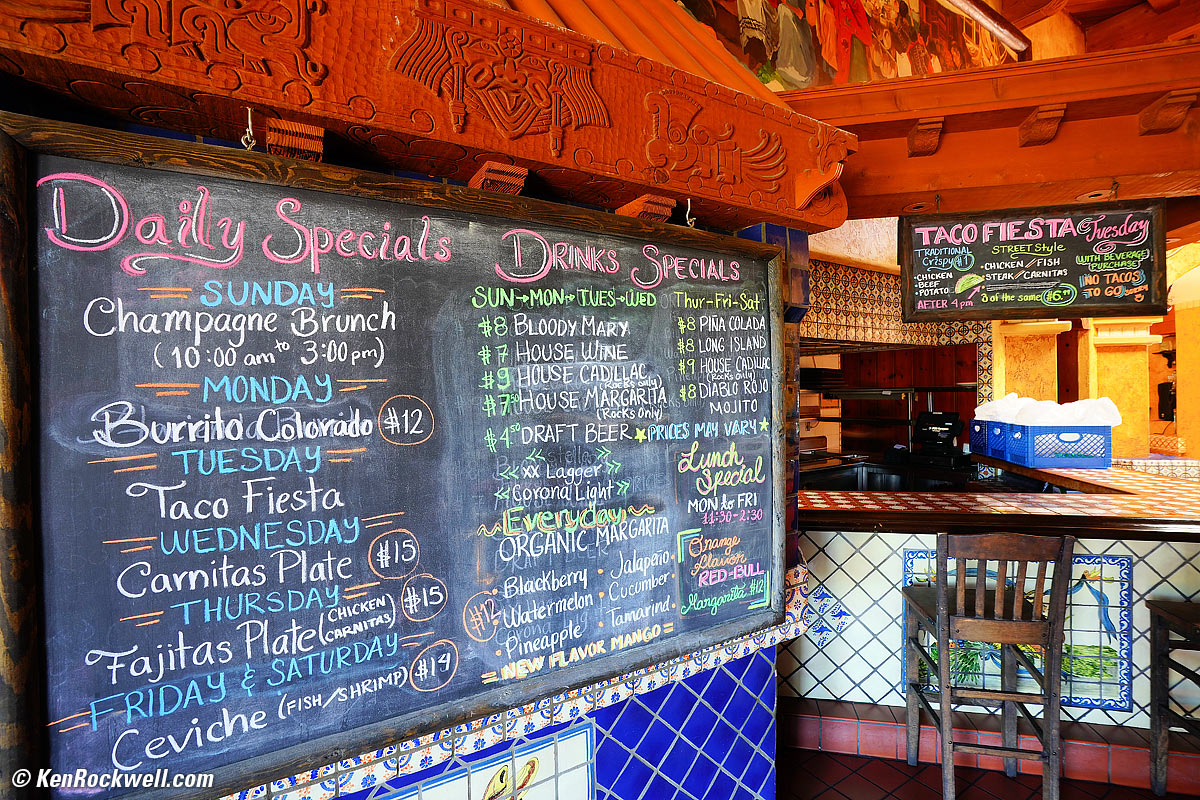 Daily Specials
SUNDAY
Champagne Brunch
(10:00 am to 3:00 pm)
MONDAY
Burrito Colorado $12
TUESDAY
Taco Fiesta
WEDNESDAY
Carnitas Plate $15
THURSDAY
Fajitas Plate (CHICKEN CARNITAS) $15
FRIDAY & SATURDAY
Ceviche (FISH/SHRIMP) $14
DRINKS SPECIALS
SUN→MON→TUES→WED
$8 BLOODY MARY
$7 HOUSE WINE
$9 HOUSE CADILLAC
(Rocks only)
$7.50 HOUSE MARGARITA
(Rocks Only)
$4.50 DRAFT BEER
XX Lagger
Corona Light
Thur-Fri-Sat
$8 PIÑA COLADA
$8 LONG ISLAND
$9 HOUSE CADILLAC
(Rocks only)
$8 DIABLO ROJO
MOJITO
★PRICES MAY VARY★
Everyday
ORGANIC MARGARITA
$12
Blackberry
Watermelon
Pineapple
• Jalapeño
• Cucumber
• Tamarind
= NEW FLAVOR MANGO =
Lunch Special
MON to FRI
11:30-2:30
Orange Flavor
RED-BULL
Margarita $12
TACO FIESTA Tuesday
TRADITIONAL
Crispy $1
• CHICKEN
• BEEF
• POTATO
AFTER 4 pm
STREET Style
• CHICKEN/FISH
• STEAK/CARNITAS
3 of the same
WITH BEVERAGE PURCHASE
NO TACOS TO GO
© KenRockwell.com